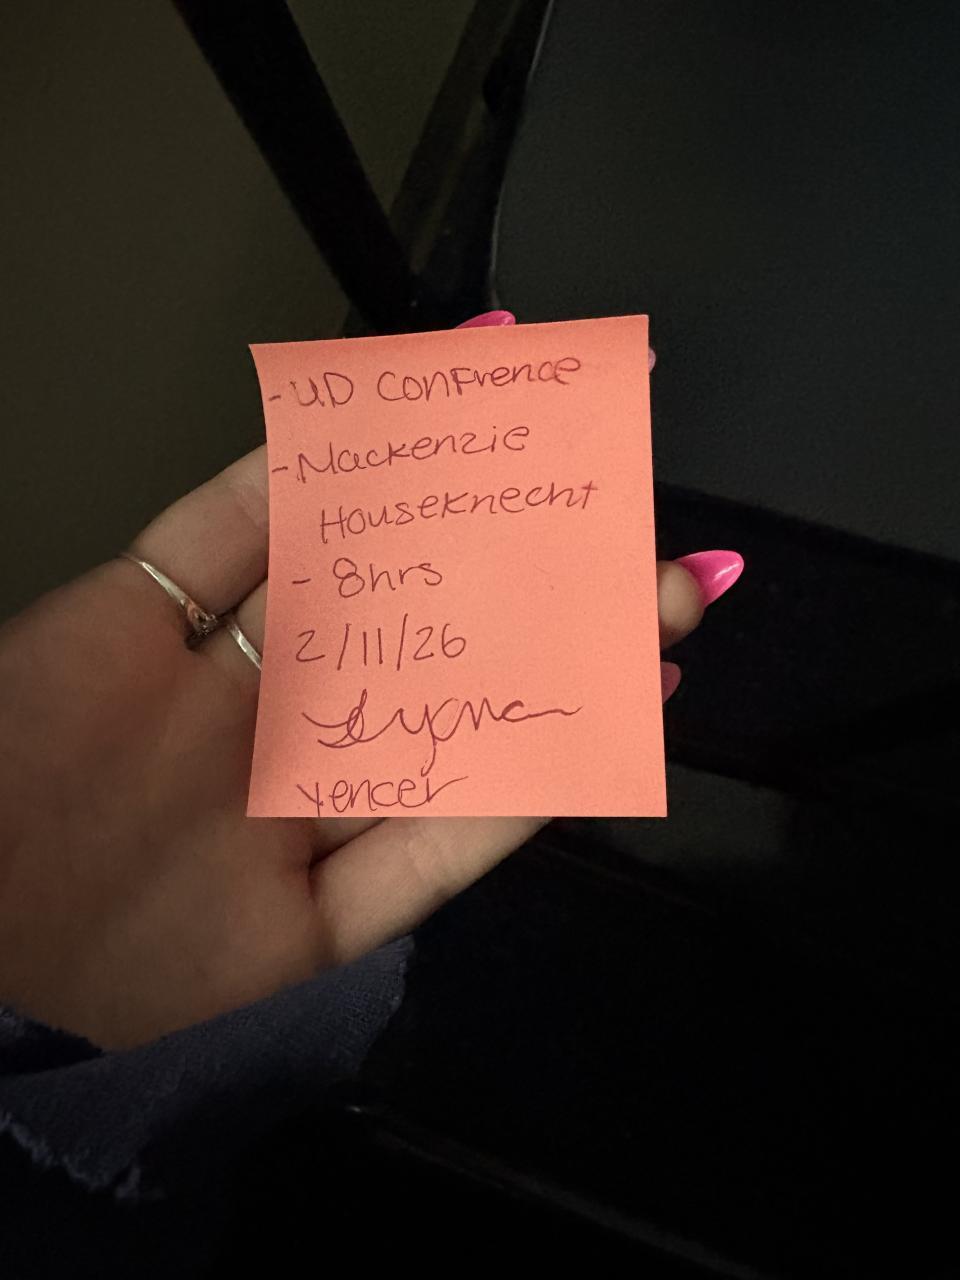 - UD Confrence
- Mackenzie
Houseknecht
- 8hrs
2/11/26
Yencer